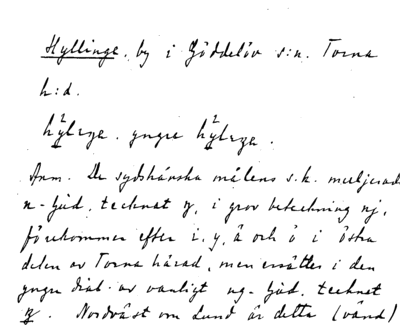 Hyllinge. by i Göddelöv s:n. Torna
h:d.
yngre
Anm. De sydskånska målens s.k. muljerade
n-ljud, tecknat i grov beteckning nj,
förekommer efter i, y, ä och ö i östra
delen av Torna härad, men ersättes i den
yngre dial. av vanligt ng-ljud, tecknat
Nordväst om Lund är detta (vänd)